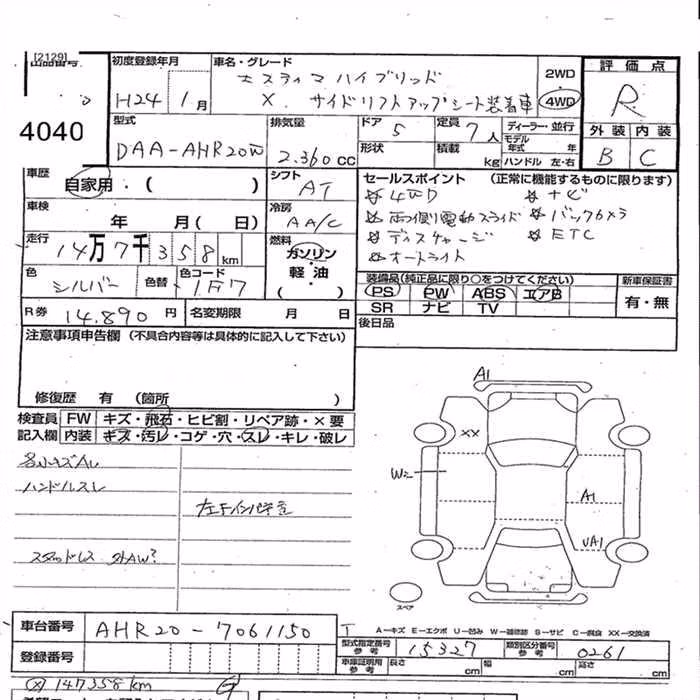 [2129]
4040
初度登録年月
H24 1月
車名・グレード
エスティマハイブリッド
X. サイドリフトアップシート装着車
2WD
4WD
評価点
R
外装 内装
B C
型式
DAA-AHR20W
排気量
2.360 CC
ドア 5
形状
定員 7人
積載 kg
ディーラー・並行
モデル年式 年
ハンドル 左・右
車歴
自家用・( )
車検
年 月( 日)
走行
14万7千358km
色
シルバー
色替
色コード
1F7
シフト
AT
冷房
AA/C
燃料
ガソリン
軽・油
( )
セールスポイント (正常に機能するものに限ります)
☆4WD ☆ナビ
☆両側電動スライド ☆バックカメラ
☆ディスチャージ ☆ETC
☆オートライト
装備品(純正品に限り○をつけてください)
PS PW ABS エアB
SR ナビ TV
新車保証書
有・無
R券 14.890円
名変期限 月 日
後日品
注意事項申告欄 (不具合内容等は具体的に記入して下さい)
修復歴 有 (箇所 )
検査員記入欄
FW キズ・飛石・ヒビ割・リペア跡・×要
内装 キズ・汚レ・コゲ・穴・スレ・キレ・破レ
各小キズAU
ハンドルスレ
左Fインパネ
スタッドレス 外AW?
A1
XX
W
A1
UA1
スペア
車台番号
AHR20-7061150
登録番号
A−キズ E−エクボ U−凹み W−補修跡 S−サビ C−腐食 XX−交換済
型式指定番号参考 15327
類別区分番号参考 0261
車庫証明用参考
長さ cm 幅 cm 高さ cm
147358km